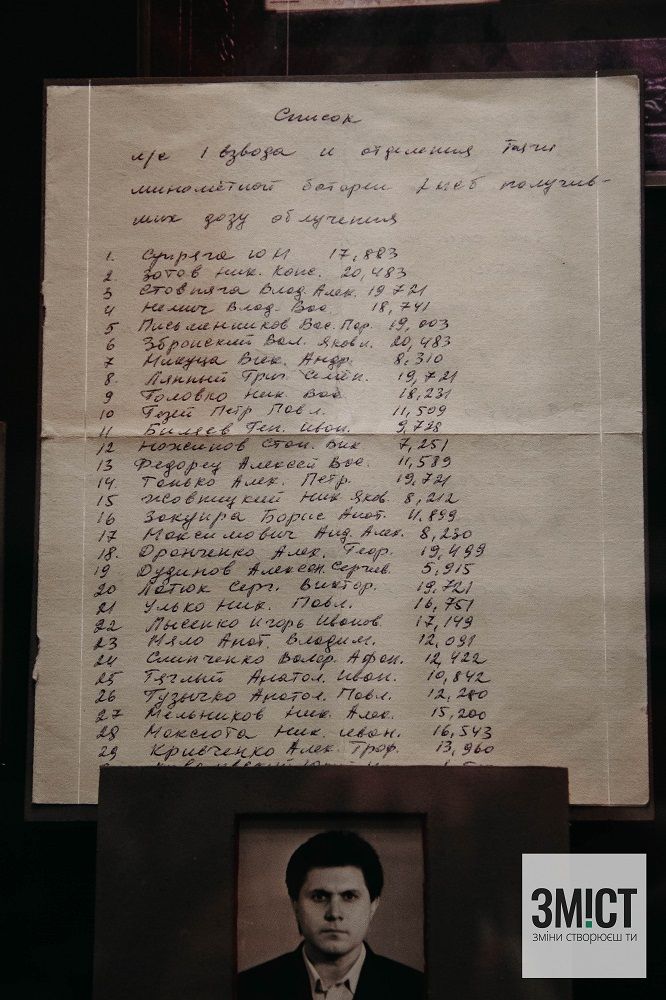 Список
л/с 1 взвода и отделения тяги
миномётной батареи 2 мсб получив-
ших дозу облучения
1. Супряга Ю И 17,883
2 Зотов Ник. Конс. 20,483
3 Стовпяга Влад. Алек. 19 721
4 Немич Влад. Вас. 18,741
5 Письменников Вас. Пор. 19,003
6 Збройский Вал. Яковл. 20,483
7 Микуца Андр. 8,310
8. Лянный Григ. Семён. 19,721
9 Головко Ник. Вас. 18,231
10 Гезей Петр Павл. 11,509
11 Биляев Ген. Иван. 9,728
12 Ножинов Стан. Вик 7,251
13 Федорец Алексей Вас. 11,589
14. Тонько Алек. Петр. 19,721
15 Жовницкий Ник Яков. 8,212
16 Закуйра Борис Анат. 11,899
17 Максимович Анд. Алек. 8,230
18. Дранченко Алек. Геор. 19,499
19 Дудинов Алексан. 5,915
20 Латюк Серг. Виктор. 19,721
21 Улько Ник. Павл. 16,751
22 Лысенко Игорь Иванов. 17,149
23 Мяло Анат. Владим. 12,091
24 Слипченко Валер. Афан. 12,422
25 Тяглый Анатол. Иван. 10,842
26 Тузычко Анатол. Павл. 12,280
27 Мельников Ник. Алек. 15,200
28 Максюта Ник. Иван. 16,543
29 Кривченко Алек. Троф. 13,960
ЗМІСТ
ЗМІНИ СТВОРЮЄШ ТИ